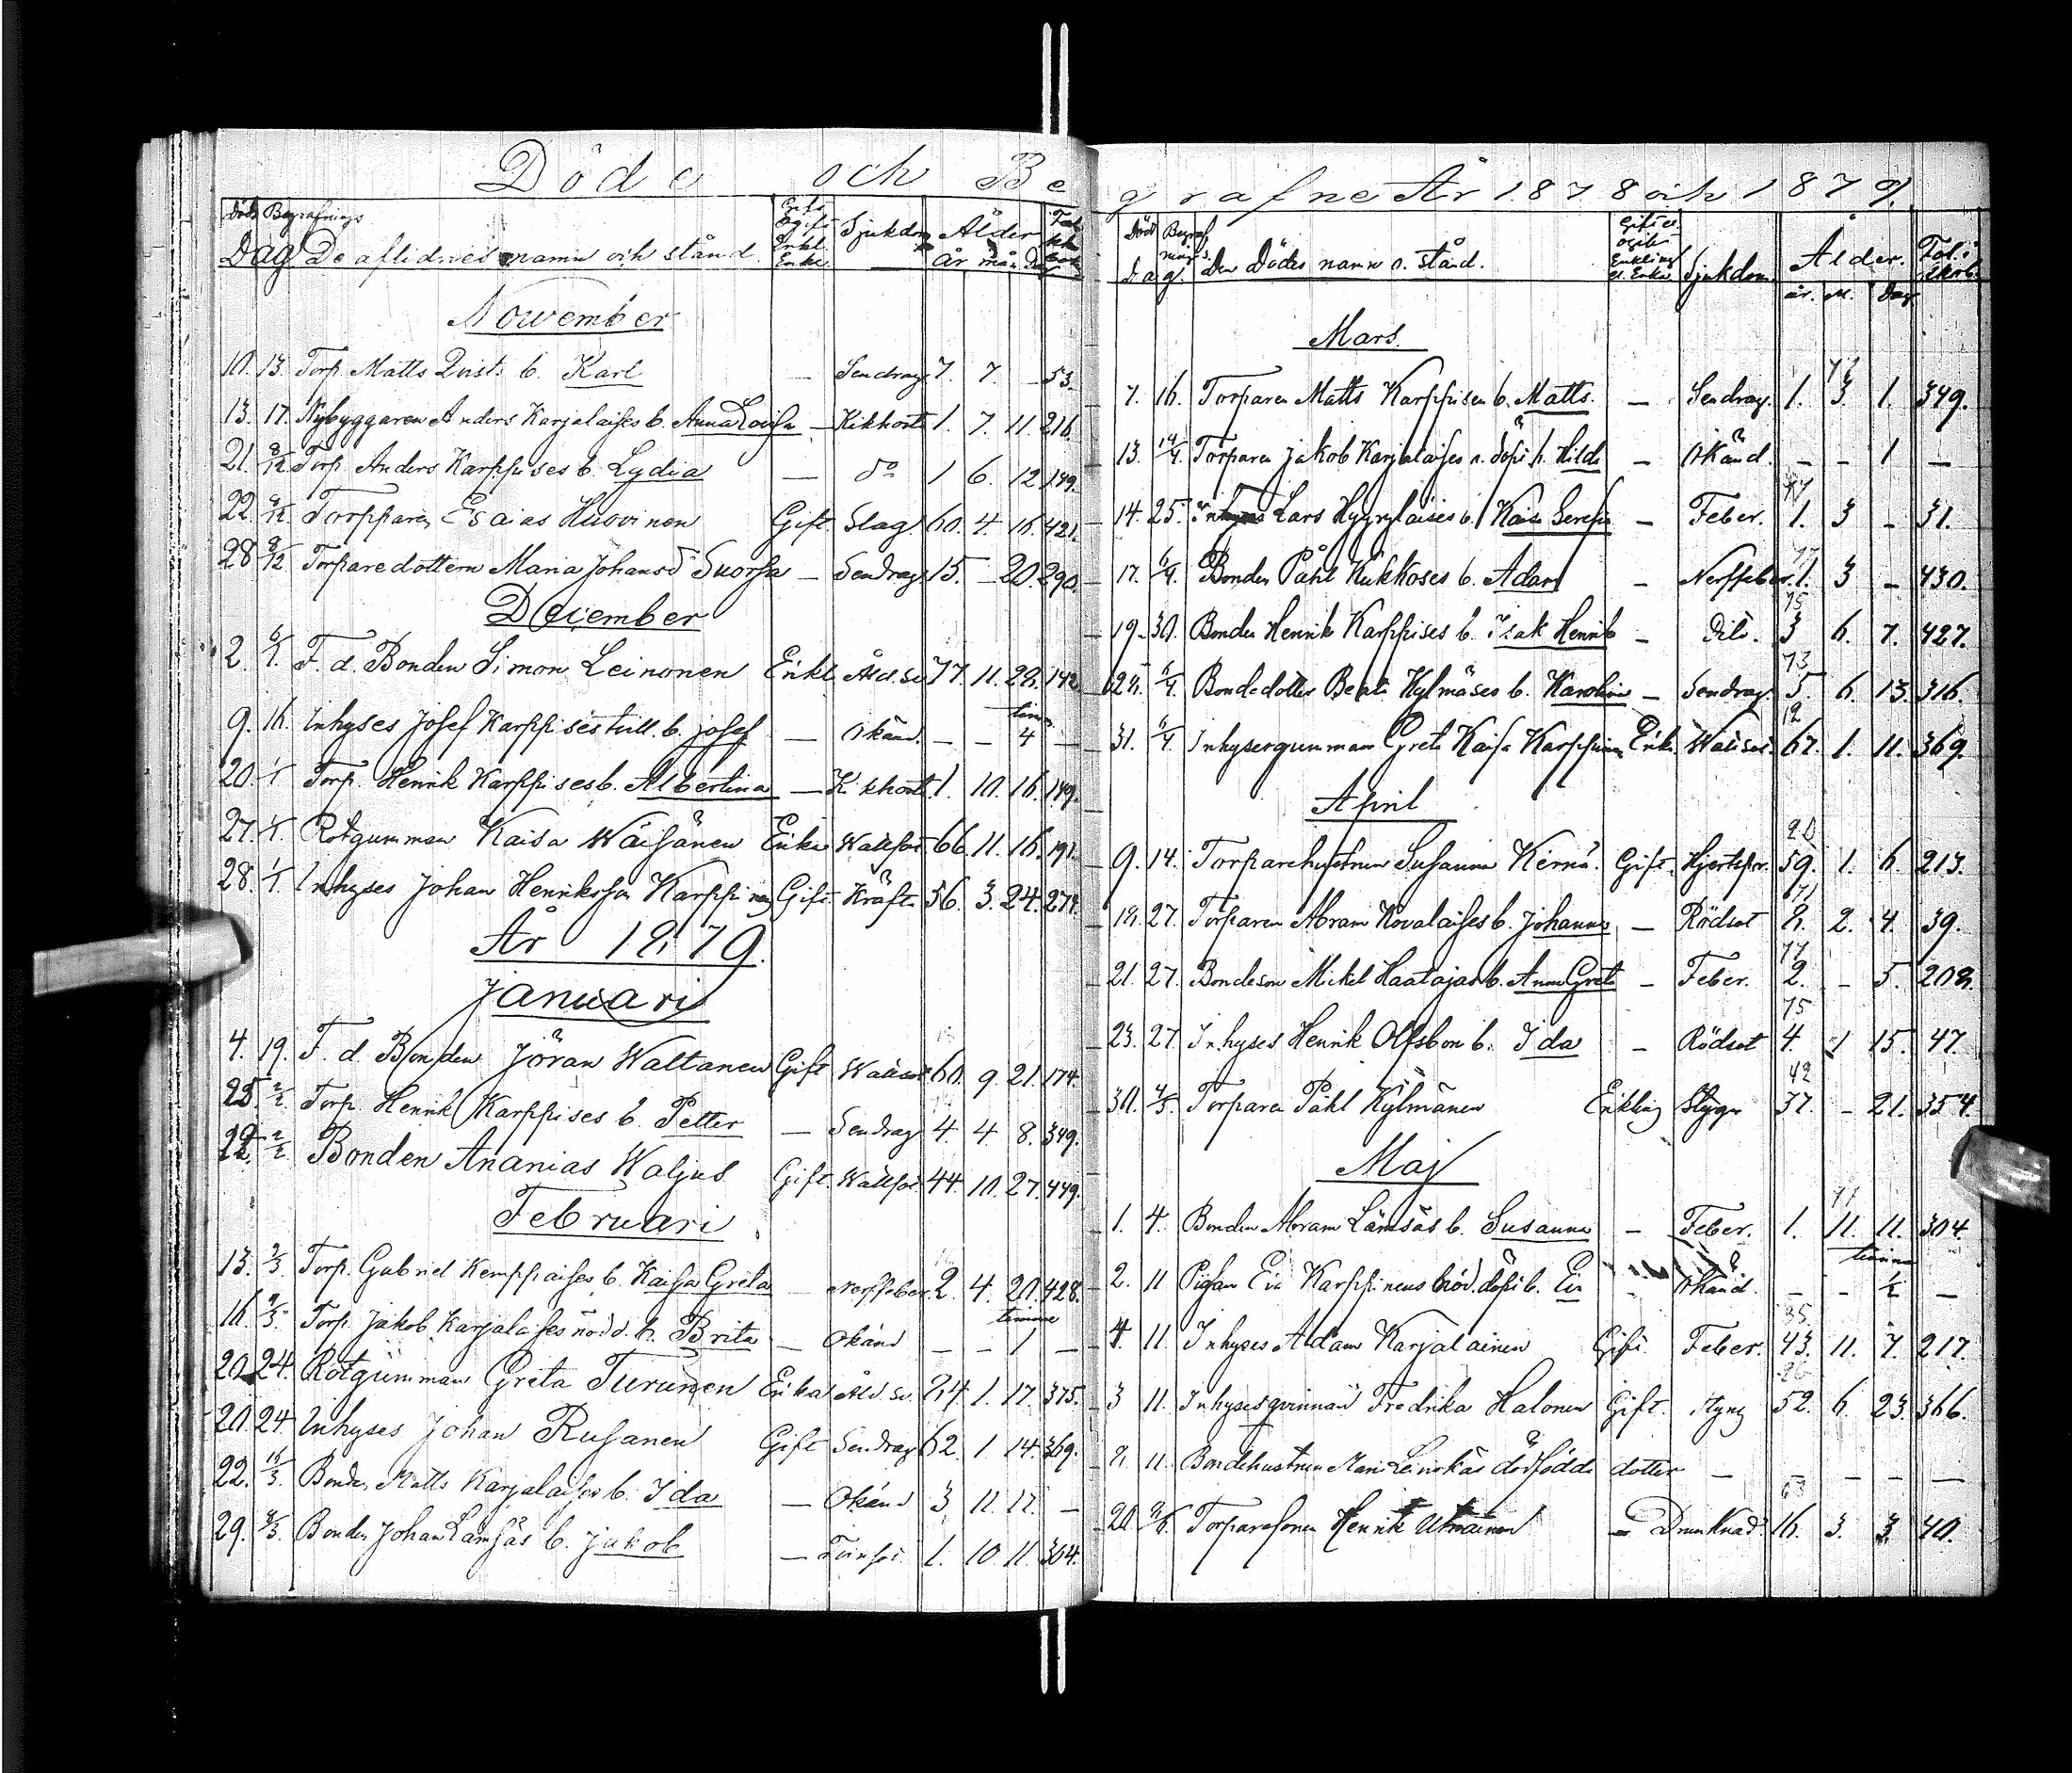 Döde och Be
Död Begrafnings
Dag De aflidnes namn och stånd. Gift Ogift Enkl. Enka Sjukdom Ålder år mån dag
November
10. 13. Torp. Matts Qvists b. Karl — Sendrag 7. 7. — 53.
13. 17. Nybyggaren Anders Karjalaises b. Anna Lovisa — Kikhosta 1. 7. 11. 216.
21. 8/12 Torp. Anders Karppises b. Lydia — do 1 6. 12 149.
22. 8/12 Torpparen Esaias Huovinen Gift. Slag. 60. 4. 16. 421.
28 8/12 Torparedottern Maria Johansd Suorsa — Sendrag 15. — 20. 290.
December
2. 6/1 F. d. Bonden Simon Leinonen Enkl. Åld.sv. 77. 11. 28. 142
9. 16. Inhyses Josef Karppises b. Josef — Okänd. — — 4 —
20. 1/1 Torp. Henrik Karppises b. Albertina — Kikhost 1. 10. 16. 149.
27. 1/1 Rotgumman Kaisa Wäisänen Enka Wattsot 66. 11. 16. 191.
28. 1/1 Inhyses Johan Henriksson Karppinen Gift. Kräfta 56. 3. 24. 274.
År 1879.
Januari
4. 19. F. d. Bonden Jöran Waltanen Gift Wattsot 60. 9. 21. 174.
25. 2/2 Torp. Henrik Karppises b. Petter — Sendrag 4. 4 8. 349.
2/2 Bonden Ananias Waljus Gift. Wattsot 44. 10. 27. 449.
Februari
13. 2/3. Torp. Gabriel Kemppaises b. Kaisa Greta Nerffeber 2. 4. 20. 428.
16. 9/3. Torp. Jakob Karjalaises nödd. b. Brita — Okänd — — timme 1 —
20. 24. Rotgumman Greta Turunen Enka Åld.sv. 84. 1. 17. 375.
20. 24. Inhyses Johan Rusanen Gift Sendrag 62. 1. 14. 369.
22. 16/3. Bonden Matts Karjalaises b. Ida — Okänd 3 11. 17. —
29. Bonden Johan Lämsäs b. Jakob — 1. 10. 11. 304.
grafne År 1878 och 1879.
Död Begrafnings
Dag. Den Dödes namn o. stånd. Gift el. ogift Enkling el. Enka Sjukdom Ålder. år. M. Dag Fol. i Skrb.
Mars.
77
7. 16. Torparen Matts Karppisen b. Matts. — Sendrag. 1. 3. 1. 349.
13. 14/4. Torparen Jakob Karjalaises n. döpt b. Hilda — Okänd. — — 1 —
77
14. 25. Inhyses Lars Hyyryläises b. Kaisa Serefia — Feber. 1. 3 — 31.
77
17. 6/4. Bonden Påhl Kukkoses b. Adam — Nerffeber. 1. 3 — 430.
75
19. 30. Bonden Henrik Karppises b. Isak Henrik — Dito. 3 6. 7. 427.
73
24. 6/4. Bondedotter Beata Kylmäses b. Karolina — Sendrag. 5. 6. 13. 316.
12
31. 6/4. Inhysesgumman Greta Kaisa Karppinen Enka. Wattsot. 67. 1. 11. 369.
April
20
9. 14. Torparehustrun Susanna Kernä. Gift. 59. 1. 6. 213.
71
18. 27. Torparen Abram Kovalaises b. Johanna — Rödsot 8. 2. 4. 39.
77
21. 27. Bondeson Mikel Haatajas b. Anna Greta — Feber. 2. — 5. 208.
75
23. 27. Inhyses Henrik Olssbon b. Ida — Rödsot 4. 1 15. 47.
42
30. 4/5. Torparen Påhl Kylmänen Enkling Styng 37. — 21. 354.
Maj
77
1. 4. Bonden Abram Lämsäs b. Susanna — Feber. 1. 11. 11. 304
2. 11 Pigan Eva Karppinens nöd.döpt b. Eva — Okänd. — — timma 1/2 —
35
4. 11. Inhyses Adam Karjalainen Gift. Feber. 43. 11. 7. 217.
26
3 11. Inhysesqvinnan Fredrika Halonen Gift. Styng 52. 6. 23. 366.
8. 11. Bondehustrun Maria Leinokäs dödfödda dotter — — — — —
63
20. Torparesonen Henrik — Drunknad 16. 3. 3. 40.